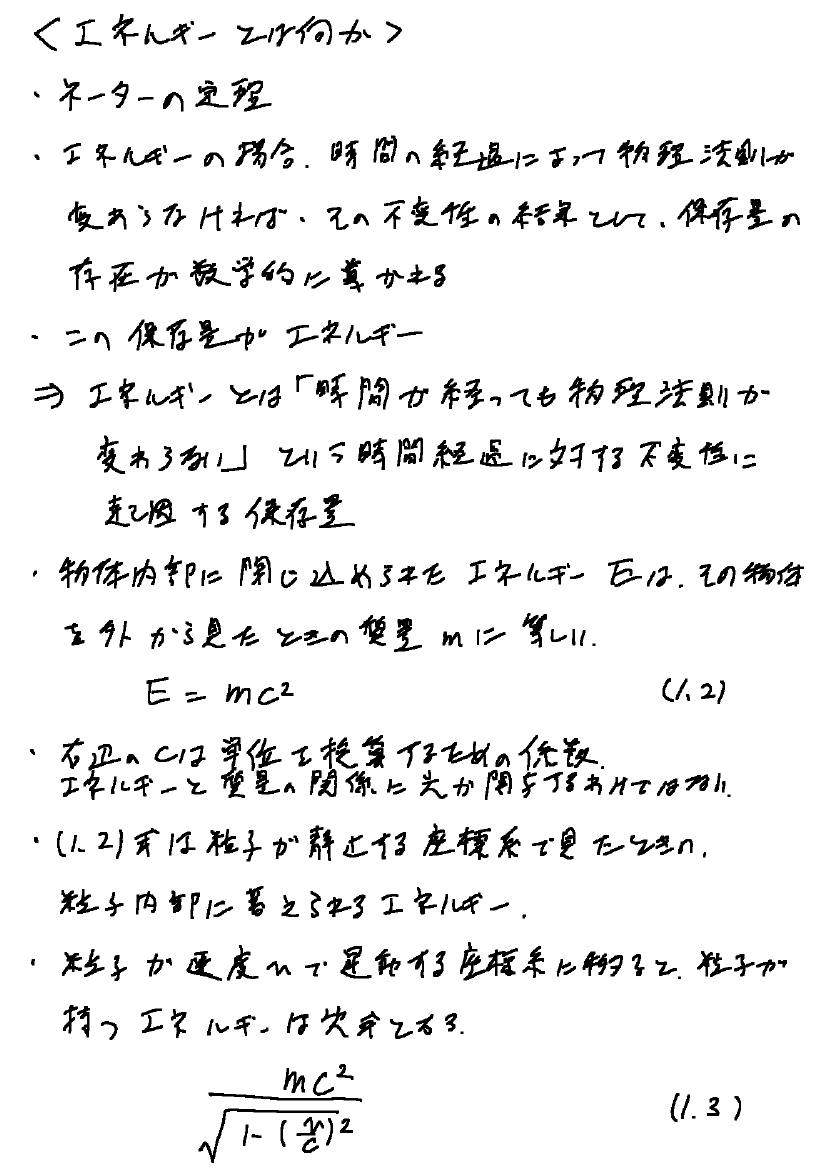 <エネルギーとは何か>
・ネーターの定理
・エネルギーの場合、時間の経過によって物理法則が
変わらなければ、その不変性の結果として、保存量の
存在が数学的に導かれる
・この保存量がエネルギー
⇒ エネルギーとは「時間が経っても物理法則が
変わらない」という時間経過に対する不変性に
起因する保存量
・物体内部に閉じ込められたエネルギーEは、その物体
を外から見たときの質量mに等しい.
E = mc² (1.2)
・右辺のcは単位を換算するための係数.
エネルギーと質量の関係に光が関与するわけではない.
・(1.2)式は粒子が静止する座標系で見たときの、
粒子内部に蓄えられるエネルギー.
・粒子が速度vで運動する座標系に移ると、粒子が
持つエネルギーは次式となる.
mc² / √(1-(v/c)²) (1.3)